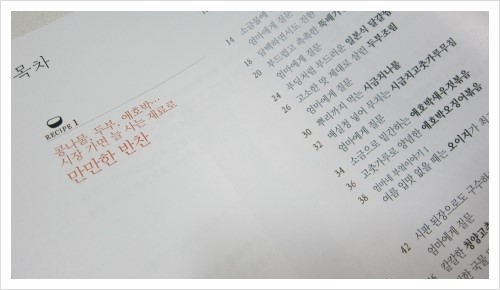 목차
RECIPE 1
콩나물, 두부, 애호박…
시장 가면 늘 사는 재료로
만만한 반찬
14 소금물에
엄마에게 질문
16 담백하면서도 진한
18 부드럽고 촉촉한 뚝배기
20 엄마에게 질문
22 푸딩처럼 부드러운 일본식 달걀찜
24 고소한 맛 제대로 살린 두부조림
26 엄마에게 질문
30 뿌리까지 먹는 시금치나물
32 매실청 넣어 무치는 시금치고춧가루무침
엄마에게 질문
34 소금으로 발간하는 애호박새우젓볶음
36 고춧가루로 양념한 애호박오징어볶음
38 엄마네 부엌이야기 1
여름 입맛 없을 때는 오이지가 최
42 시판 된장으로도 구수하
엄마에게 질문
46 칼칼한 청양고추
국물